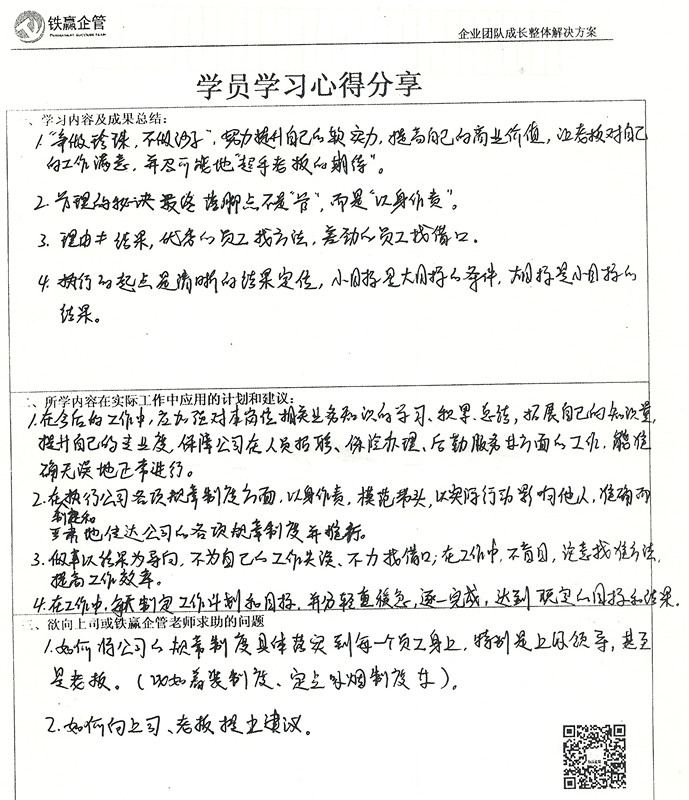 铁赢企管
企业团队成长整体解决方案
学员学习心得分享
一、学习内容及成果总结:
1."争做珍珠,不做沙子",努力提升自己的软实力,提高自己的商业价值,让老板对自己
的工作满意,并尽可能地"超乎老板的期待"。
2.管理的秘诀最终落脚点不是"管",而是"以身作责"。
3.理由≠结果,优秀的员工找方法,差劲的员工找借口。
4.执行的起点是清晰的结果定位,小目标是大目标的条件,大目标是小目标的
结果。
二、所学内容在实际工作中应用的计划和建议:
1.在今后的工作中,应加强对本岗位相关业务知识的学习、积累、总结,拓展自己的知识量,
提升自己的专业度,保障公司在人员招聘、保险办理、后勤服务等方面的工作,能准
确无误地正常进行。
2.在执行公司各项规章制度方面,以身作责,模范带头,以实际行动影响他人,准确而
地传达公司的各项规章制度并推行。
3.做事以结果为导向,不为自己的工作失误、不力找借口;在工作中,不盲目,注意找准方法,
提高工作效率。
4.在工作中,每天制定工作计划和目标,并分轻重缓急,逐一完成,达到既定的目标和结果。
三、欲向上司或铁赢企管老师求助的问题
1.如何将公司的规章制度具体落实到每一个员工身上,特别是上层领导,甚至
是老板。(比如着装制度、定点吸烟制度等)。
2.如何向上司、老板提出建议。